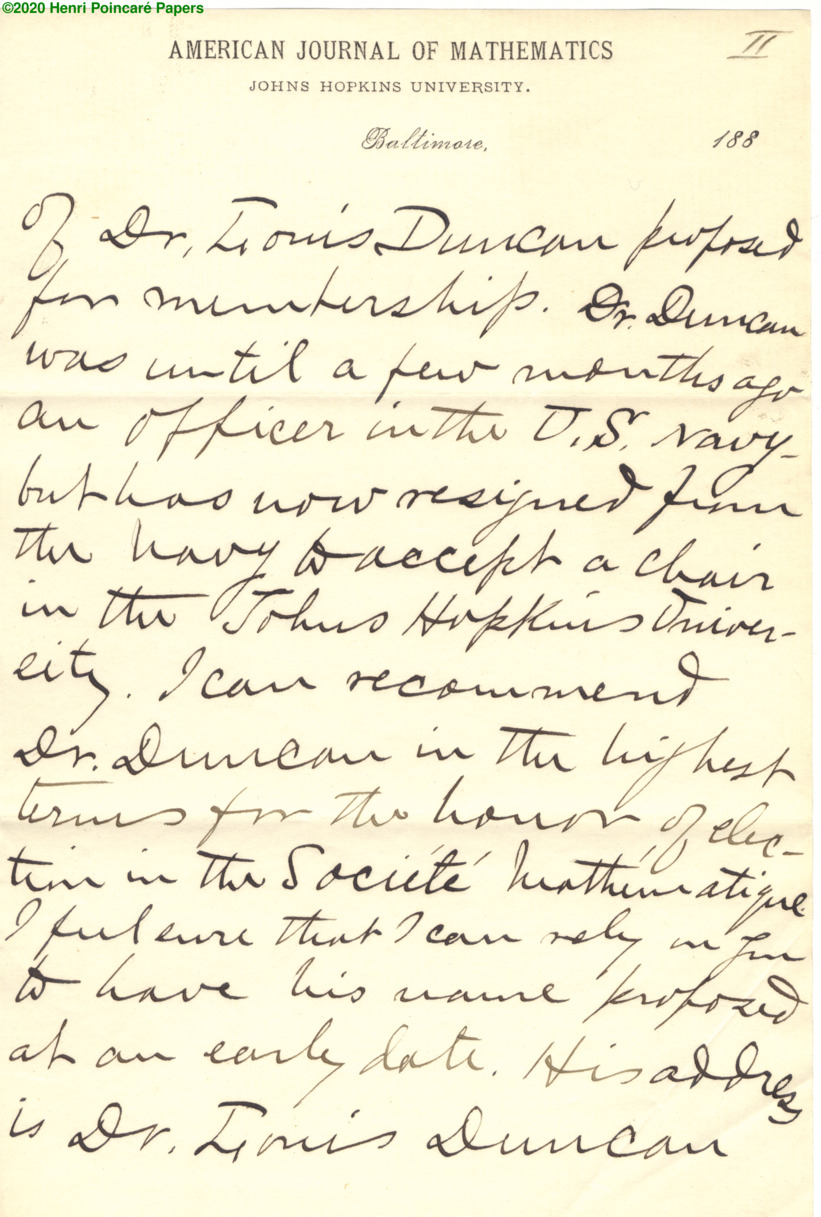 ©2020 Henri Poincaré Papers
AMERICAN JOURNAL OF MATHEMATICS
II
JOHNS HOPKINS UNIVERSITY.
Baltimore, 188
of Dr, Louis Duncan proposed
for membership. Dr. Duncan
was until a few months ago
an officer in the U.S. Navy-
but has now resigned from
the Navy to accept a chair
in the Johns Hopkins Univer-
sity. I can recommend
Dr. Duncan in the highest
terms for the honor of elec-
tion in the Société Mathématique.
I feel sure that I can rely on you
to have his name proposed
at an early date. His address
is Dr. Louis Duncan